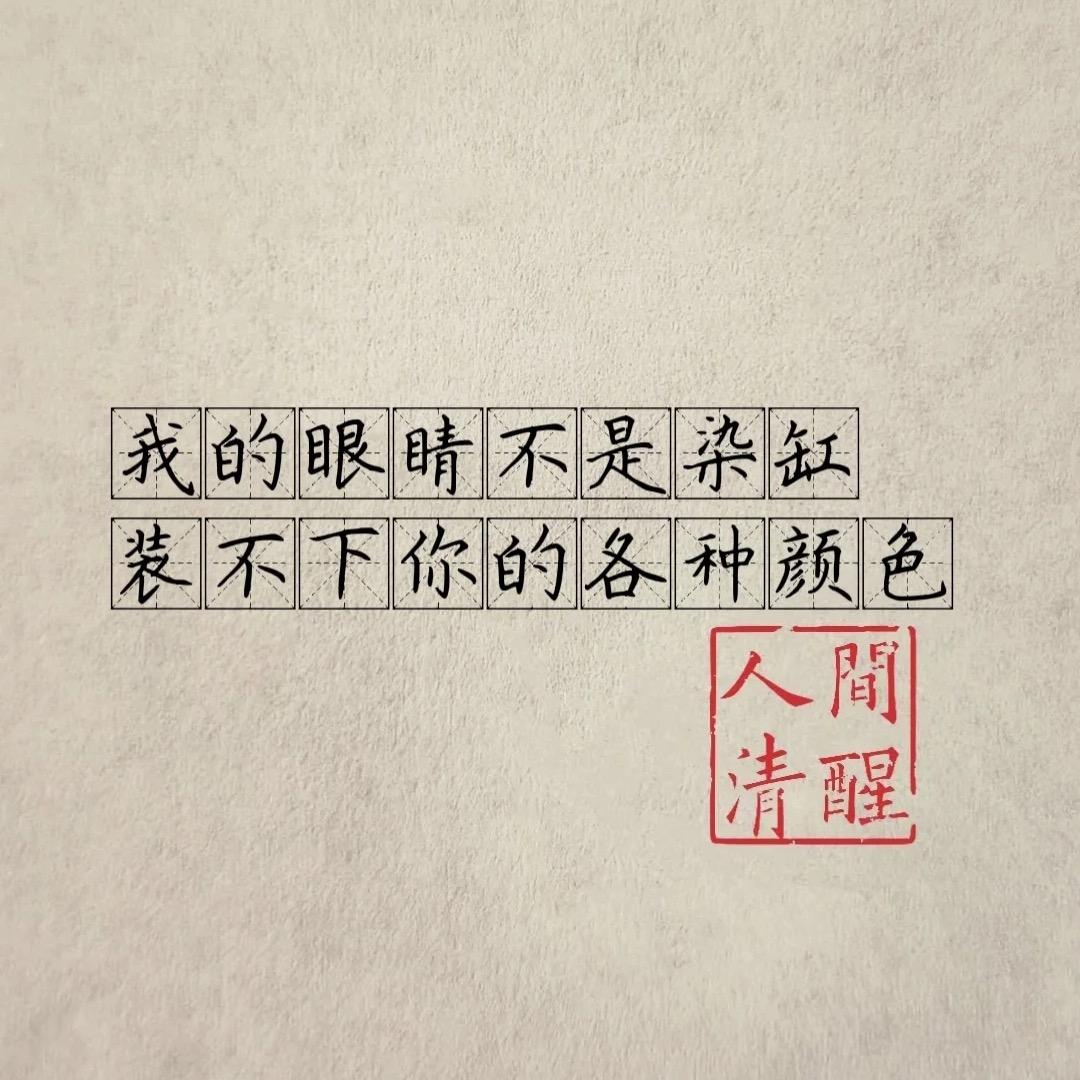 我的眼睛不是染缸
装不下你的各种颜色
人間
清醒